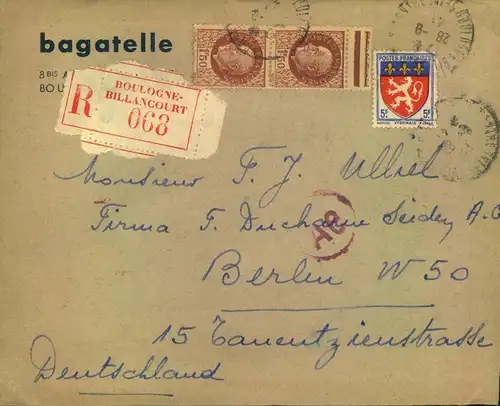 bagatelle
8 BIS A
BOU
R
BOULOGNE-
BILLANCOURT
068
1F50
1F50
POSTES FRANÇAISES
5F 5F
LYONNAIS
Monsieur F. J. Ullsel
Firma F. Ducharm Seiden A.G
A8
Berlin W 50
15 Tauentzienstrasse
Deutschland